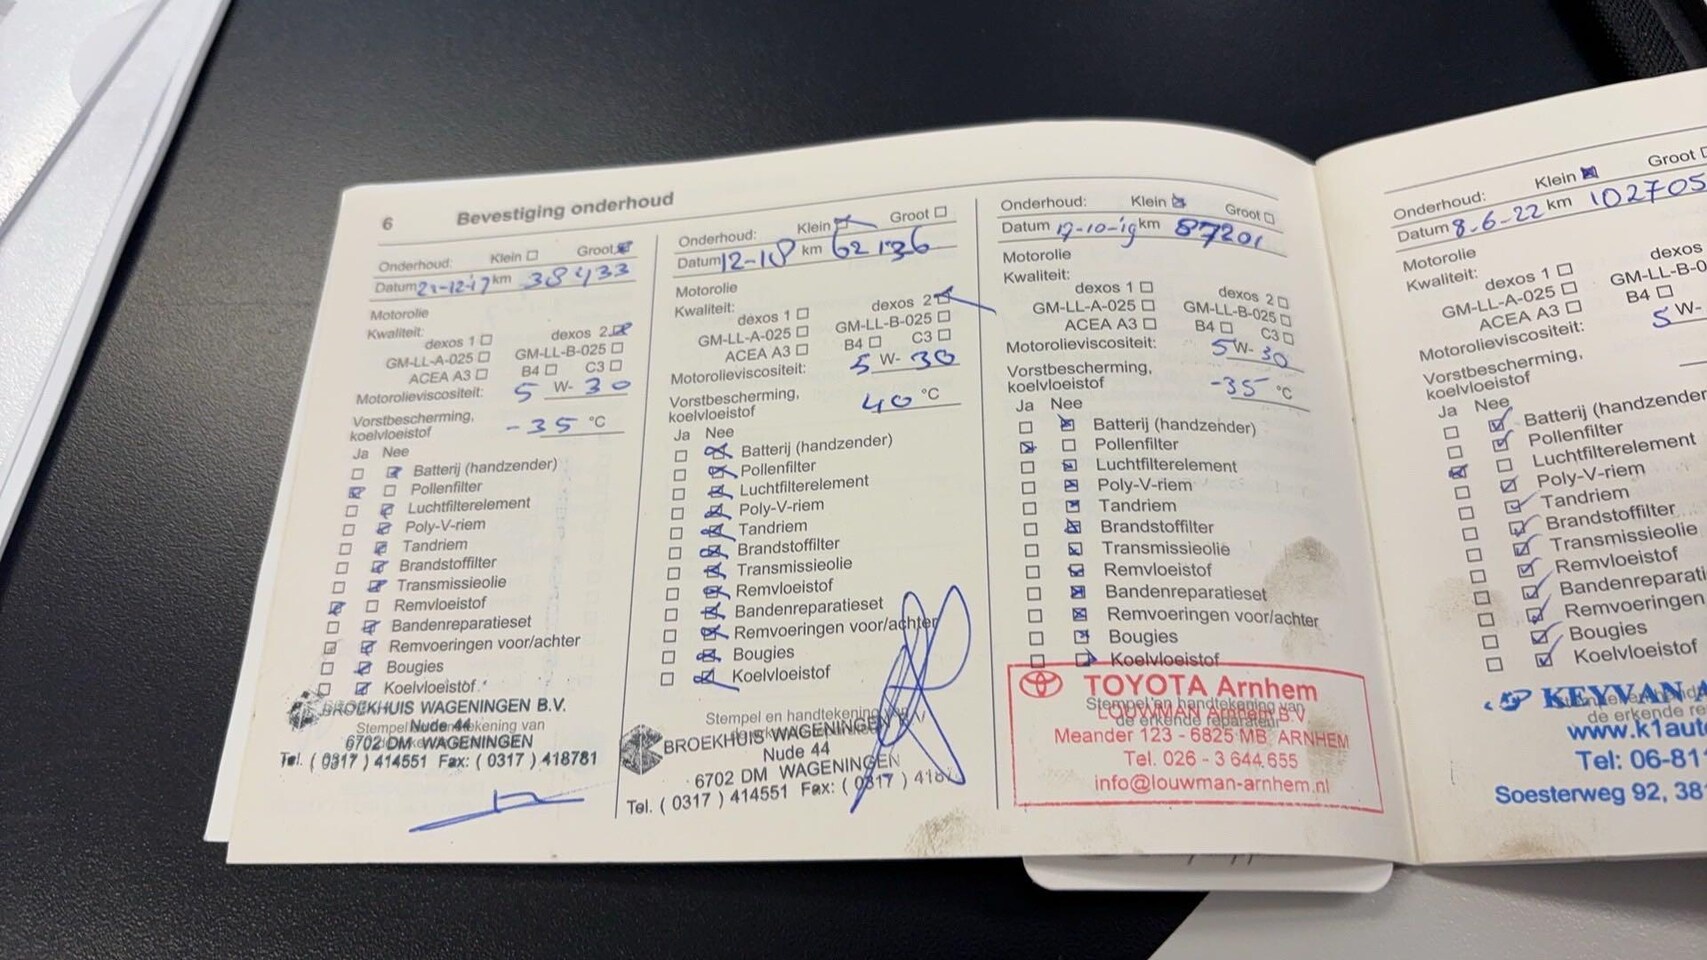 6 Bevestiging onderhoud
Onderhoud: Klein Groot
Datum 21-12-17 km 38433
Motorolie
Kwaliteit:
dexos 1 dexos 2
GM-LL-A-025 GM-LL-B-025
ACEA A3 B4 C3
Motorolieviscositeit: 5 W- 30
Vorstbescherming,
koelvloeistof -35 °C
Ja Nee
Batterij (handzender)
Pollenfilter
Luchtfilterelement
Poly-V-riem
Tandriem
Brandstoffilter
Transmissieolie
Remvloeistof
Bandenreparatieset
Remvoeringen voor/achter
Bougies
Koelvloeistof
BROEKHUIS WAGENINGEN B.V.
Stempel en handtekening van
Nude 44
6702 DM WAGENINGEN
Tel. ( 0317 ) 414551 Fax: ( 0317 ) 418781
Onderhoud: Klein Groot
Datum 12-18 km 62136
Motorolie
Kwaliteit:
dexos 1 dexos 2
GM-LL-A-025 GM-LL-B-025
ACEA A3 B4 C3
Motorolieviscositeit: 5 W- 30
Vorstbescherming,
koelvloeistof 40 °C
Ja Nee
Batterij (handzender)
Pollenfilter
Luchtfilterelement
Poly-V-riem
Tandriem
Brandstoffilter
Transmissieolie
Remvloeistof
Bandenreparatieset
Remvoeringen voor/achter
Bougies
Koelvloeistof
Stempel en handtekening van
BROEKHUIS WAGENINGEN B.V
Nude 44
6702 DM WAGENINGEN
Tel. ( 0317 ) 414551 Fax: ( 0317 ) 418
Onderhoud: Klein Groot
Datum 17-10-19 km 87201
Motorolie
Kwaliteit:
dexos 1 dexos 2
GM-LL-A-025 GM-LL-B-025
ACEA A3 B4 C3
Motorolieviscositeit: 5 W- 30
Vorstbescherming,
koelvloeistof -35 °C
Ja Nee
Batterij (handzender)
Pollenfilter
Luchtfilterelement
Poly-V-riem
Tandriem
Brandstoffilter
Transmissieolie
Remvloeistof
Bandenreparatieset
Remvoeringen voor/achter
Bougies
Koelvloeistof
TOYOTA Arnhem
Stempel en handtekening van
LOUWMAN Arnhem B.V
de erkende reparateur
Meander 123 - 6825 MB ARNHEM
Tel. 026 - 3 644 655
info@louwman-arnhem.nl
Onderhoud: Klein Groot
Datum 8-6-22 km 102705
Motorolie
Kwaliteit:
dexos 1 dexos
GM-LL-A-025 GM-LL-B-0
ACEA A3 B4
Motorolieviscositeit: 5 W-
Vorstbescherming,
koelvloeistof
Ja Nee
Batterij (handzender
Pollenfilter
Luchtfilterelement
Poly-V-riem
Tandriem
Brandstoffilter
Transmissieolie
Remvloeistof
Bandenreparati
Remvoeringen
Bougies
Koelvloeistof
KEYVAN A
de erkende re
www.k1aut
Tel: 06-811
Soesterweg 92, 38